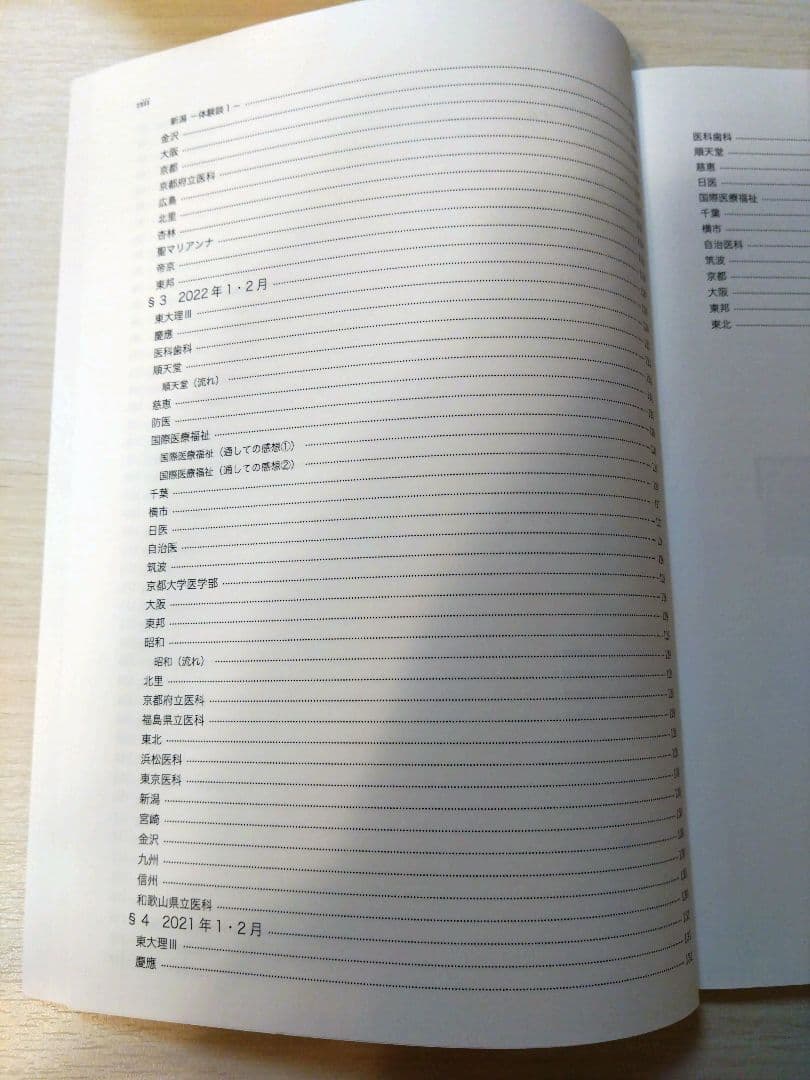 viii
新潟 －体験談1－
金沢
大阪
京都
京都府立医科
広島
北里
杏林
聖マリアンナ
帝京
東邦
§3 2022年1・2月
東大理Ⅲ
慶應
医科歯科
順天堂
順天堂（流れ）
慈恵
防医
国際医療福祉
国際医療福祉（通しての感想①）
国際医療福祉（通しての感想②）
千葉
横市
日医
自治医
筑波
京都大学医学部
大阪
東邦
昭和
昭和（流れ）
北里
京都府立医科
福島県立医科
東北
浜松医科
東京医科
新潟
宮崎
金沢
九州
信州
和歌山県立医科
§4 2021年1・2月
東大理Ⅲ
慶應
医科歯科
順天堂
慈恵
日医
国際医療福祉
千葉
横市
自治医科
筑波
京都
大阪
東邦
東北